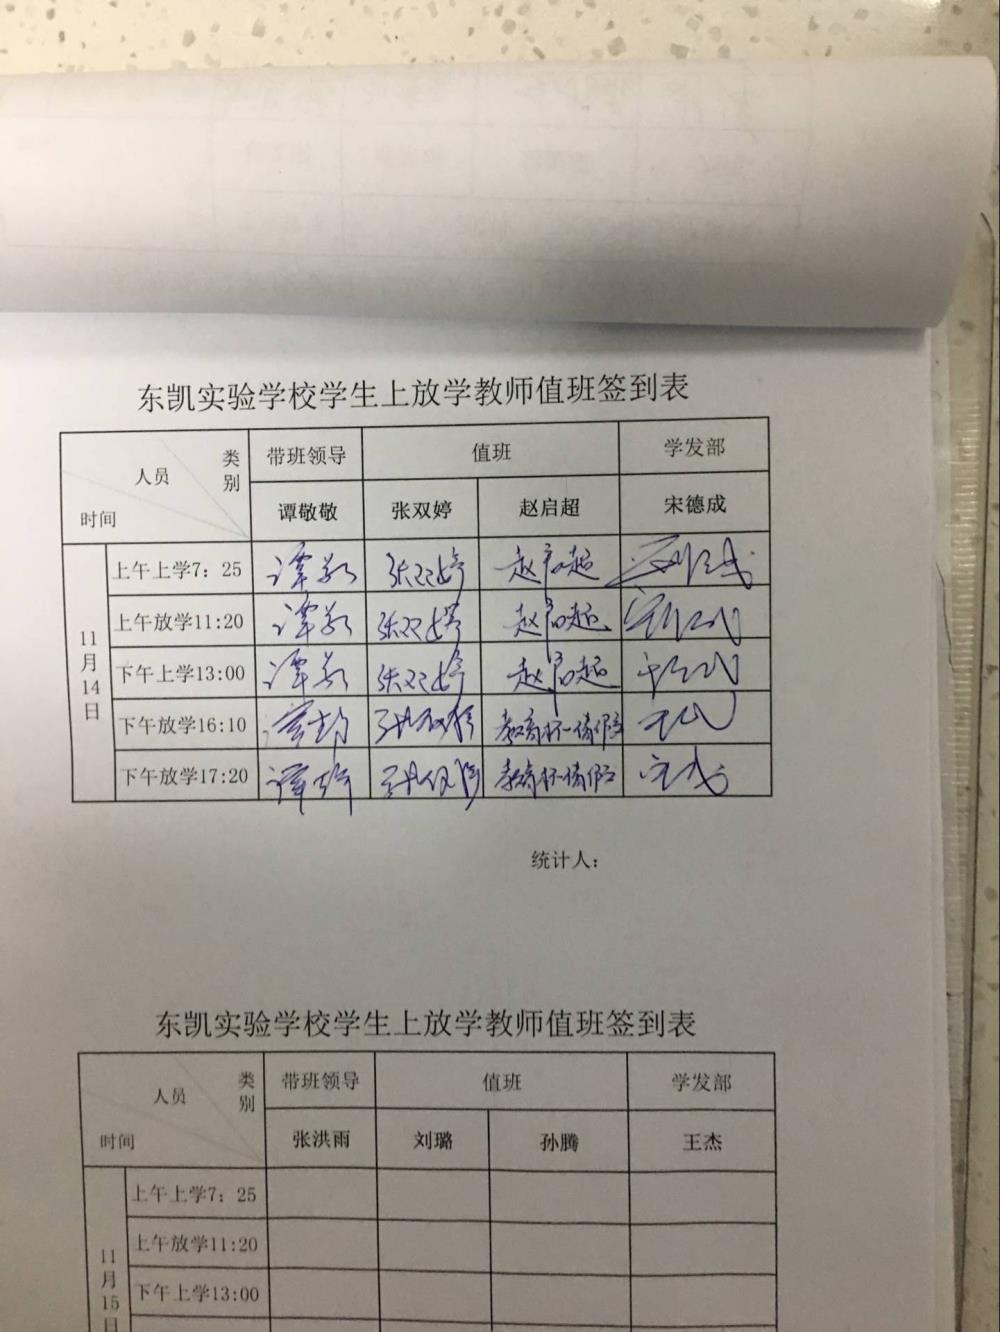 东凯实验学校学生上放学教师值班签到表
类别 人员 时间 带班领导 值班 学发部
谭敬敬 张双婷 赵启超 宋德成
11月14日
上午上学7：25 谭敬 张双婷 赵启超
上午放学11:20 谭敬 张双婷 赵启超
下午上学13:00 谭敬 张双婷 赵启超
下午放学16:10
下午放学17:20
统计人：
东凯实验学校学生上放学教师值班签到表
类别 人员 时间 带班领导 值班 学发部
张洪雨 刘璐 孙腾 王杰
11月15日
上午上学7：25
上午放学11:20
下午上学13:00